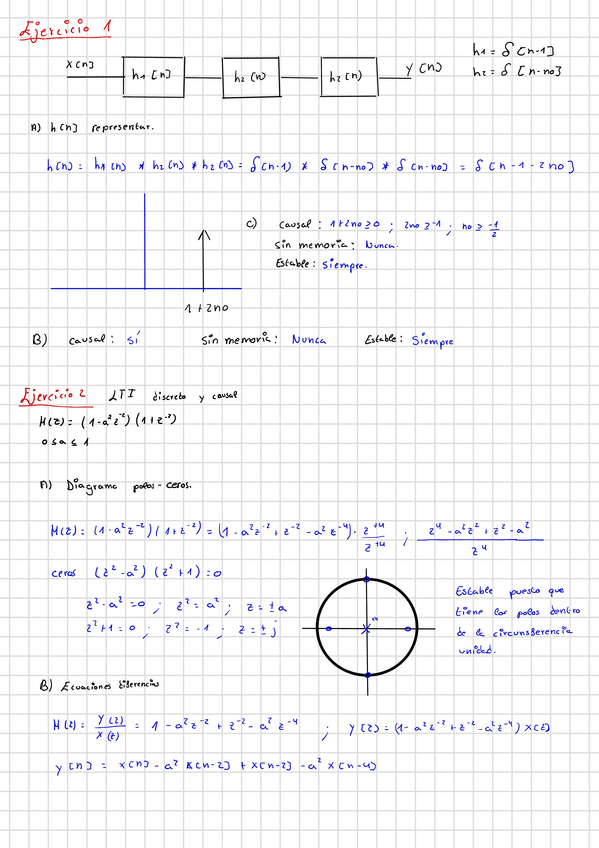 Ejercicio 1
x[n] h1[n] h2[n] h2[n] y[n]
h1 = δ[n-1]
h2 = δ[n-no]
A) h[n] representar.
h[n] = h1[n] * h2[n] * h2[n] = δ[n-1] * δ[n-no] * δ[n-no] = δ[n-1-2no]
C) causal: 1+2no≥0 ; 2no≥-1 ; no ≥ -1/2
sin memoria: Nunca.
Estable: siempre.
1+2no
B) causal: sí sin memoria: Nunca Estable: Siempre
Ejercicio 2 LTI discreto y causal
H(z) = (1-a²z⁻²)(1+z⁻²)
0≤a≤1
A) Diagrama polos-ceros.
H(z) = (1-a²z⁻²)(1+z⁻²) = (1-a²z⁻²+z⁻²-a²z⁻⁴) · z⁺⁴/z⁺⁴ ; (z⁴-a²z²+z²-a²)/z⁴
ceros (z²-a²)(z²+1)=0
z²-a²=0 ; z²=a² ; z=±a
z²+1=0 ; z²=-1 ; z=±j
4
Estable puesto que
tiene los polos dentro
de la circunsferencia
unidad.
B) Ecuaciones diferencias
H(z) = Y(z)/X(z) = 1-a²z⁻²+z⁻²-a²z⁻⁴ ; Y(z) = (1-a²z⁻²+z⁻²-a²z⁻⁴)X(z)
y[n] = x[n]-a²x[n-2]+x[n-2]-a²x[n-4]